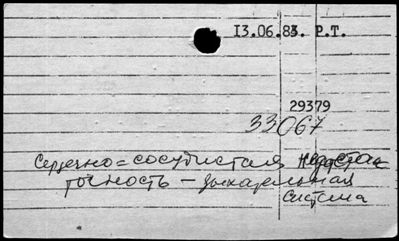 13.06.83. Р.Т.
29379
33067
Сердечно=сосудистая недоста
точность — дыхательная
система